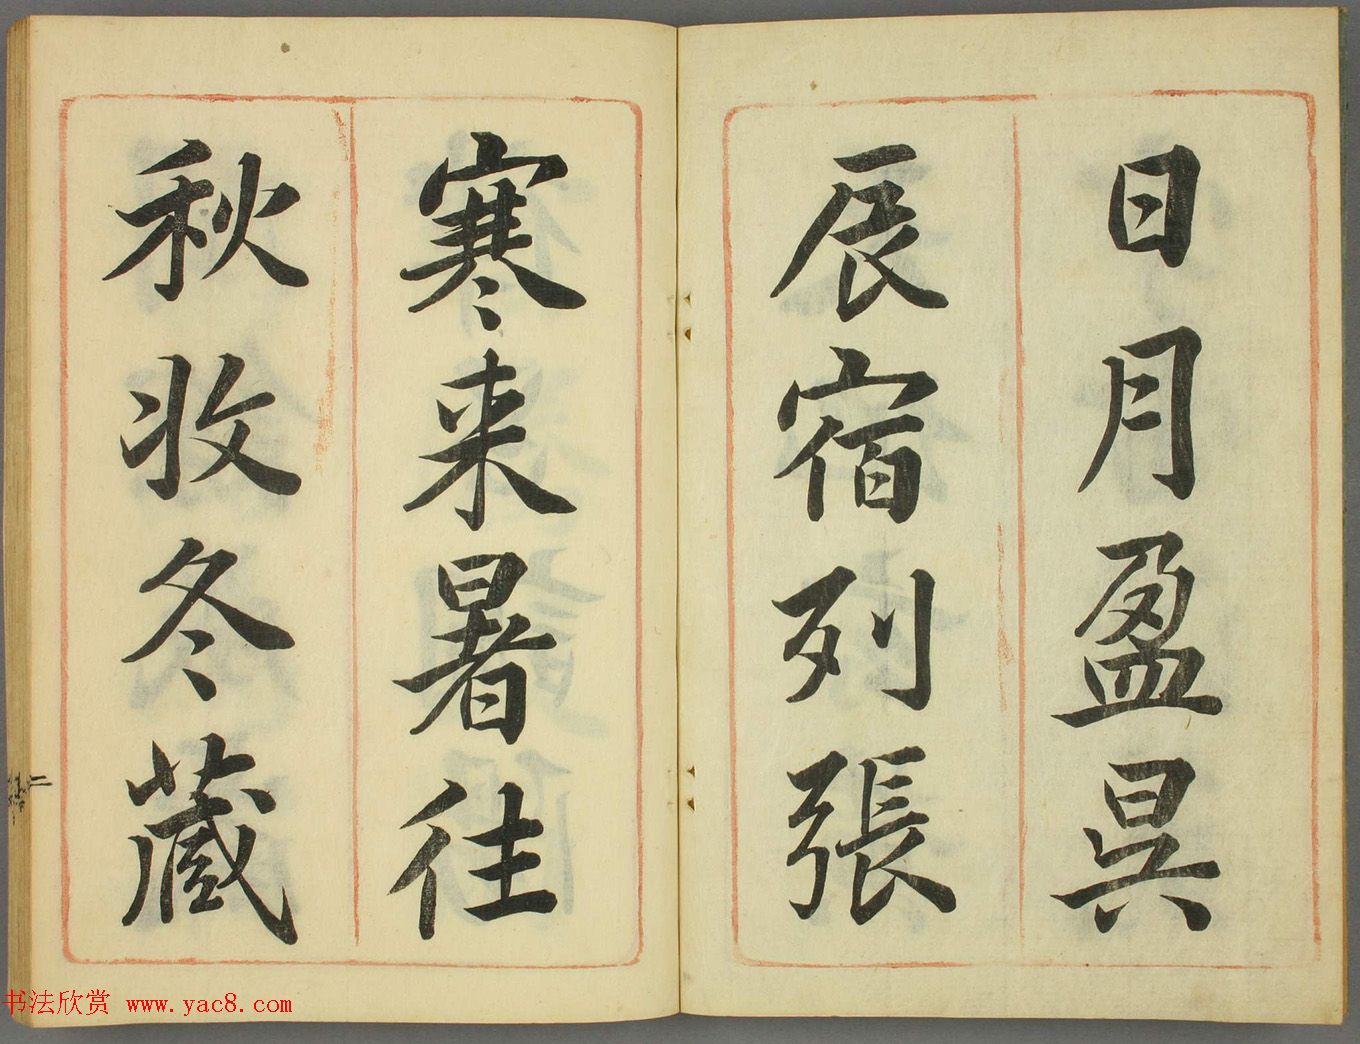 日月盈昃
辰宿列張
寒来暑往
秋收冬藏
二
书法欣赏 www.yac8.com